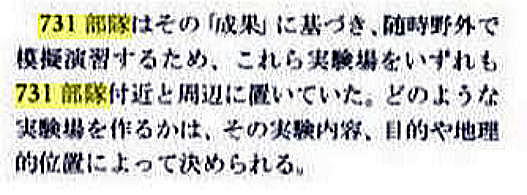 731部隊はその「成果」に基づき、随時野外で
模擬演習するため、これら実験場をいずれも
731部隊付近と周辺に置いていた。どのような
実験場を作るかは、その実験内容、目的や地理
的位置によって決められる。